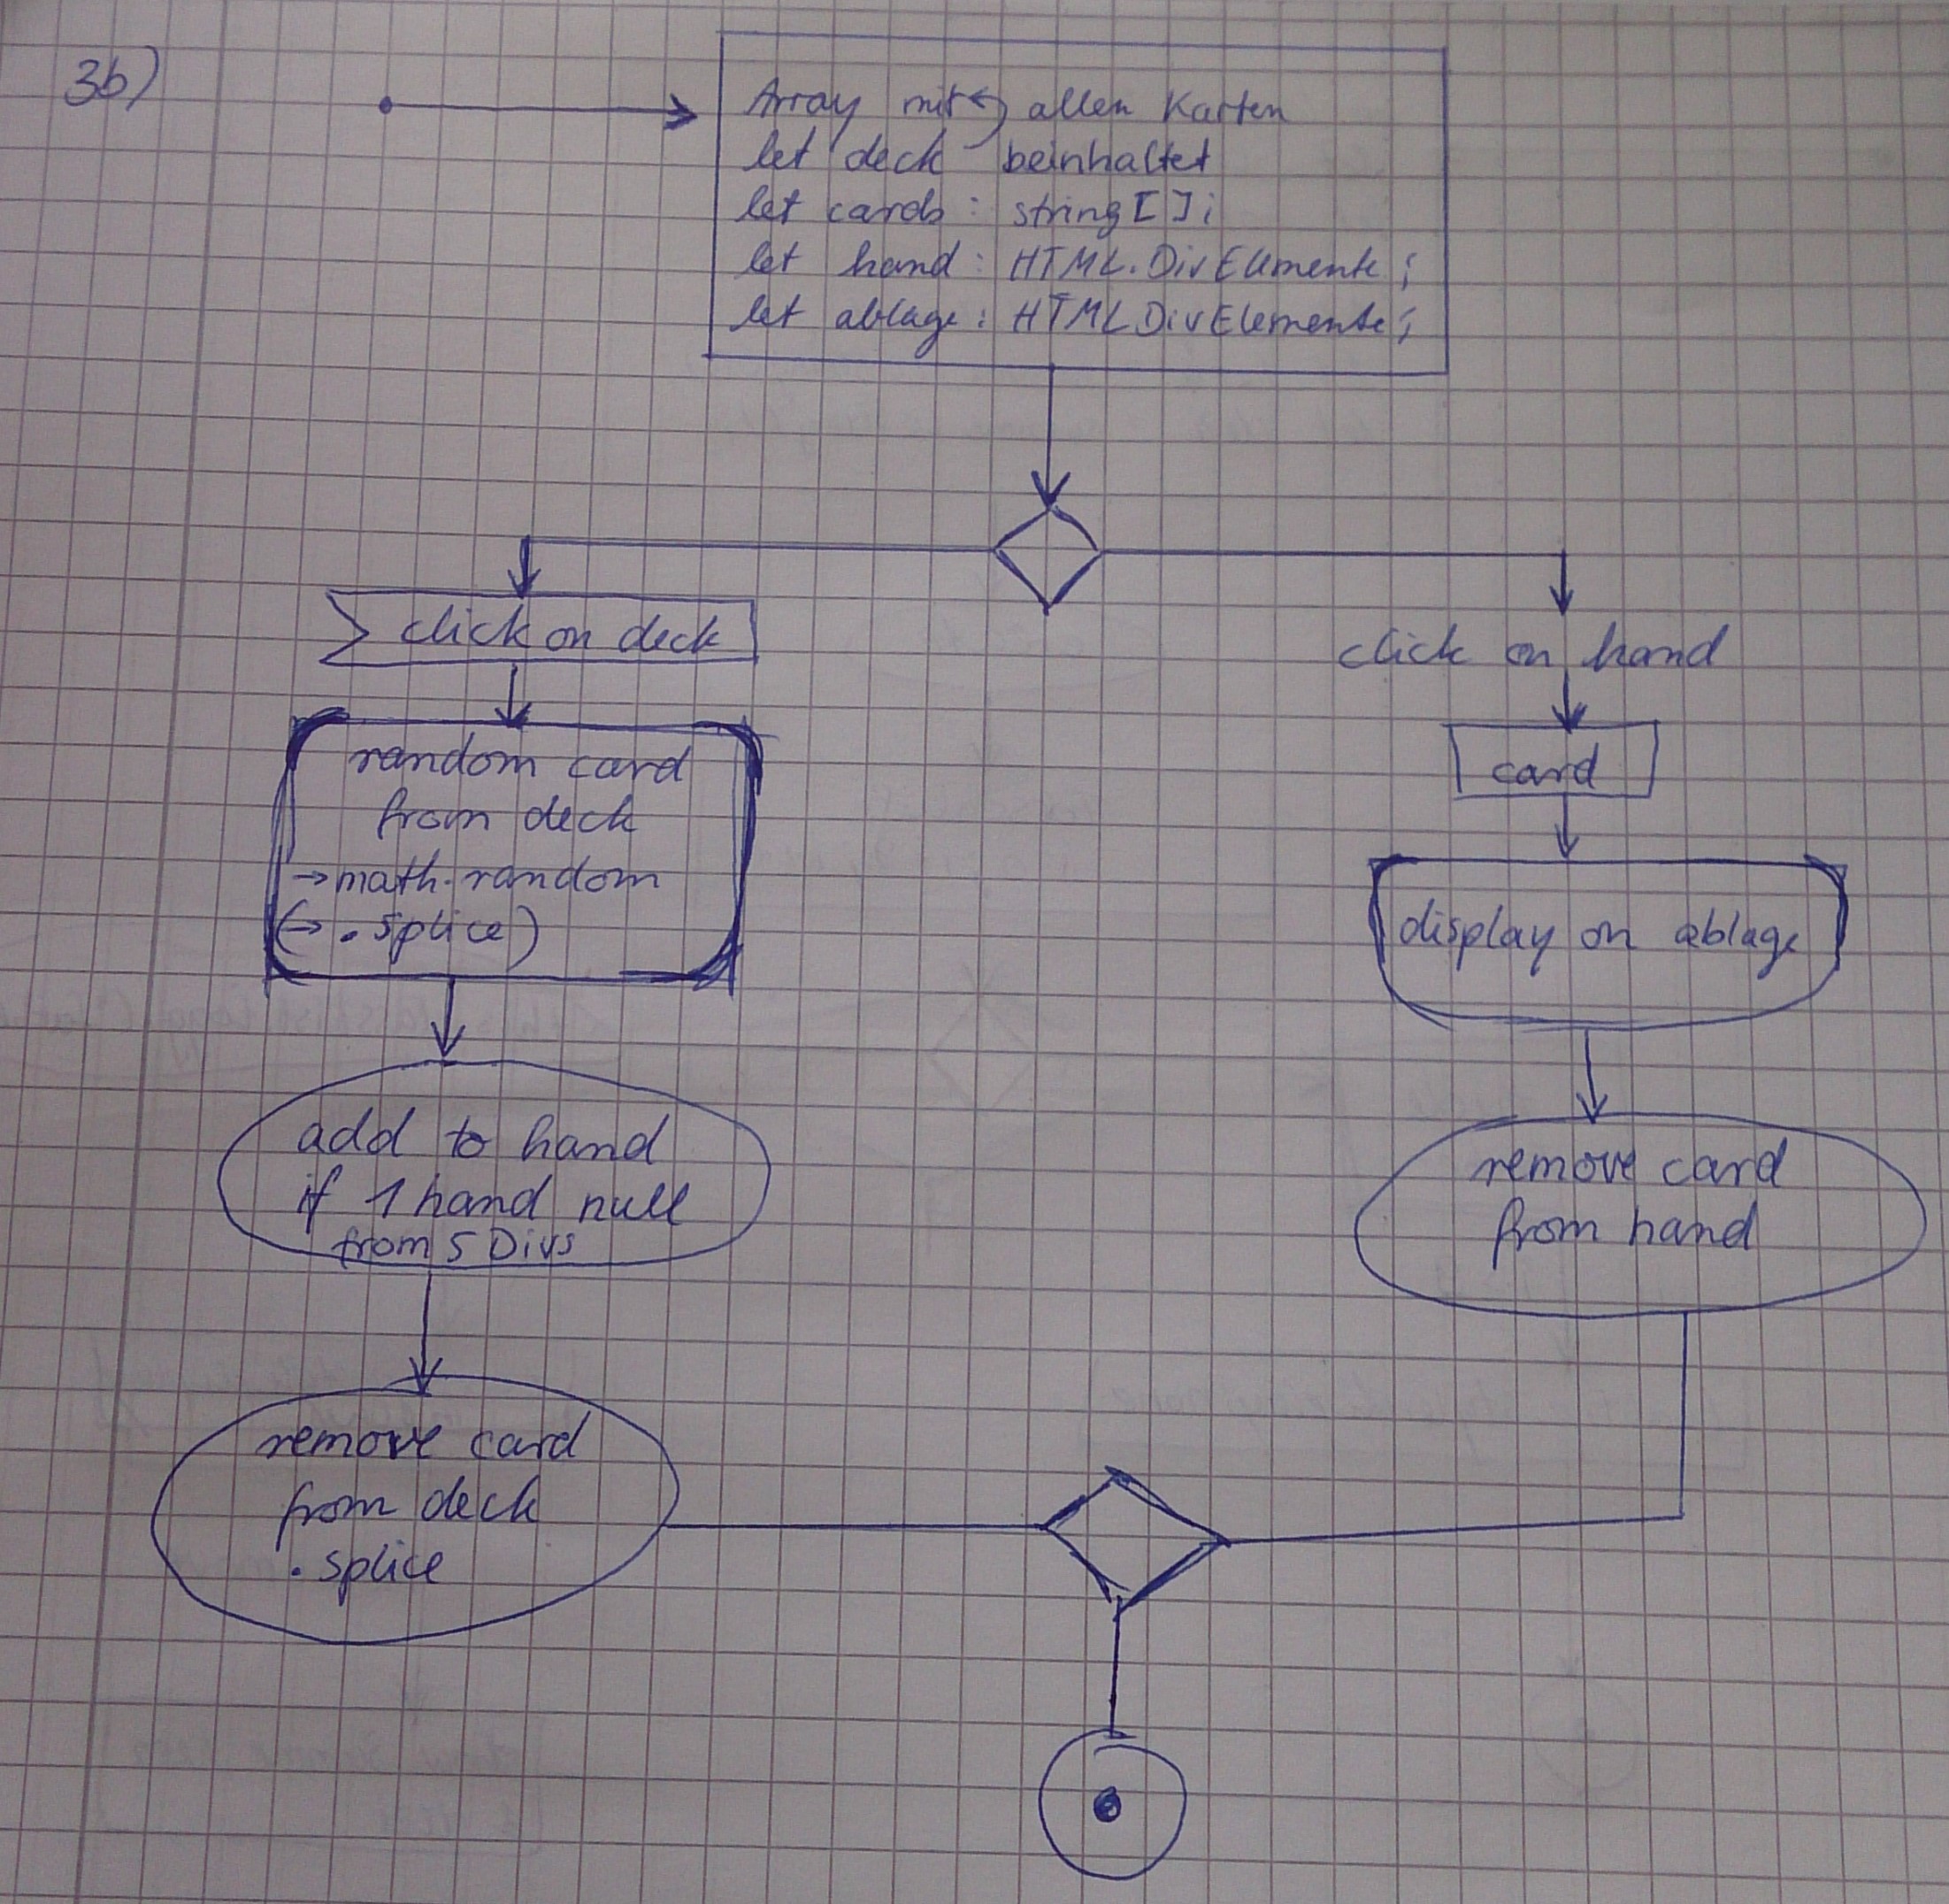 3b)
Array mit allen Karten
let deck beinhaltet
let cards : string [ ];
let hand : HTML.DivElemente ;
let ablage : HTMLDivElemente ;
click on deck
random card
from deck
→ math.random
(→ .splice)
add to hand
if 1 hand null
from 5 Divs
remove card
from deck
.splice
click on hand
card
display on ablage
remove card
from hand